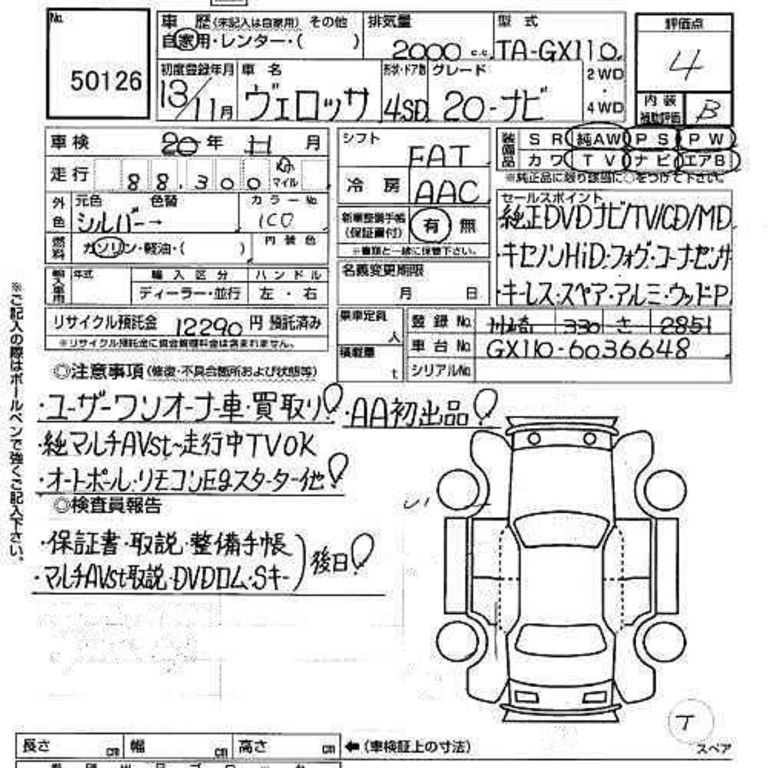 No. 50126
車歴 (未記入は自家用) その他
自家用・レンター・( )
排気量 2000 c.c.
型式 TA-GX110
評価点 4
初度登録年月 13/11月
車名 ヴェロッサ
形状・ドア数 4SD
グレード 20-ナビ
2WD
4WD
内装補助評価 B
車検 20年 11月
シフト FAT
装備品 SR 純AW PS PW
カワ TV ナビ エアB
※純正品に限り該当に○をつけて下さい。
走行 88,300 km マイル
冷房 AAC
外色 元色 シルバー 色替 → カラーNo. 1C0
セールスポイント
純正DVDナビ/TV/CD/MD
・キセノンHiD・フォグ・コーナセンサ
・キーレス・スペア・アルミ・ウッドP
新車整備手帳(保証書付) 有 無
※書類と一緒に保管下さい。
燃料 ガソリン・軽油・( ) 内装色
輸入車用 年式 輸入区分 ハンドル
ディーラー・並行 左・右
名義変更期限
月 日
リサイクル預託金 12290 円 預託済み
※リサイクル預託金に資金管理料金は含まれません。
乗車定員 人
積載量 t
登録No. 川崎 330 さ 2851
車台No. GX110-6036648
シリアルNo.
◎注意事項 (修復・不具合箇所および状態等)
・ユーザーワンオーナー車・買取り! ・AA初出品!
・純マルチAVst〜走行中TVOK
・オートポール・リモコンEgスターター他!
◎検査員報告
・保証書・取説・整備手帳
・マルチAVst取説・DVDロム・Sキー) 後日!
※ご記入の際はボールペンで強くご記入下さい。
T
スペア
長さ cm 幅 cm 高さ cm ←(車検証上の寸法)